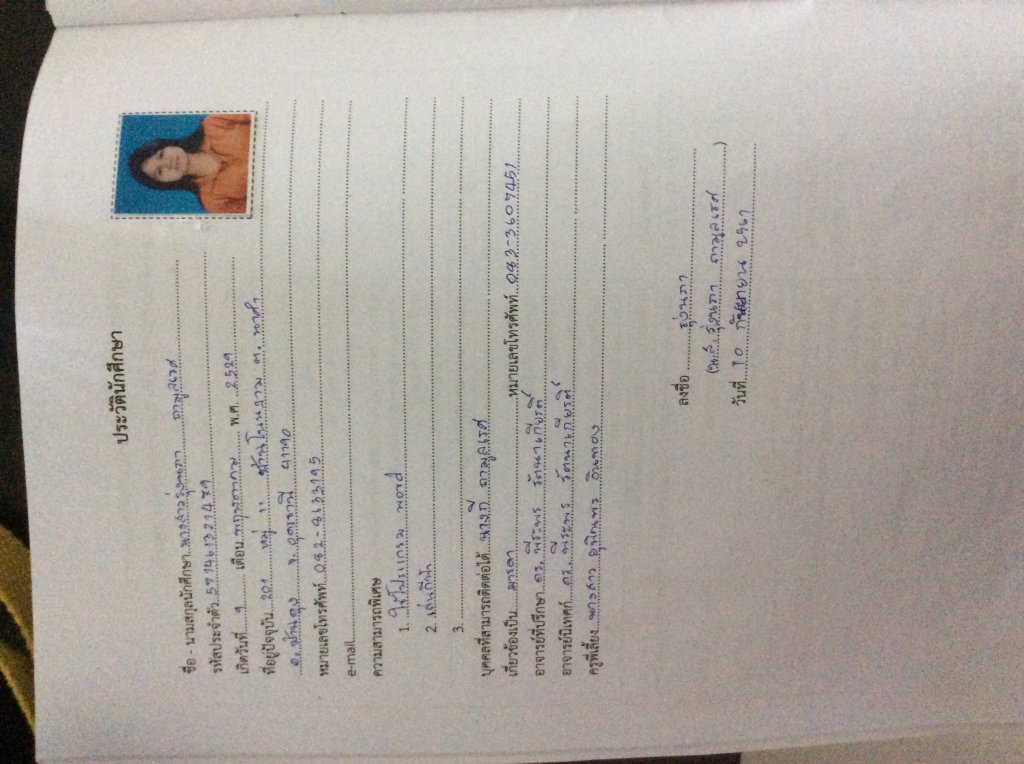 ประวัตินักศึกษา
ชื่อ - นามสกุลนักศึกษา นางสาวรุ่งนภา ถามูลเรศ
รหัสประจำตัว 57146121479
เกิดวันที่ 9 เดือน พฤษภาคม พ.ศ. 2529
ที่อยู่ปัจจุบัน 201 หมู่ 11 บ้านโนนงาม ต. นาคำ
อ. บ้านดุง จ. อุดรธานี 41190
หมายเลขโทรศัพท์
e-mail
ความสามารถพิเศษ
1. ใช้โปรแกรม word
2. เล่นกีฬา
3.
บุคคลที่สามารถติดต่อได้ ถามูลเรศ
เกี่ยวข้องเป็น มารดา หมายเลขโทรศัพท์ 092-3607451
อาจารย์ที่ปรึกษา ดร. พีระพร รัตนาเกียรติ์
อาจารย์นิเทศก์ ดร. พีระพร รัตนาเกียรติ์
ครูพี่เลี้ยง นางสาว
ลงชื่อ รุ่งนภา
(น.ส. รุ่งนภา ถามูลเรศ)
วันที่ 10 กันยายน 2561